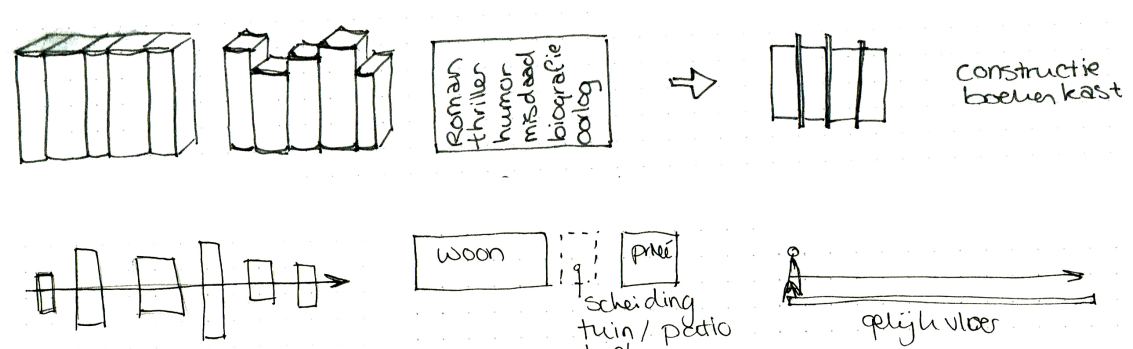 Roman
thriller
humor
misdaad
biografie
oorlog
constructie
boekenkast
woon
privé
scheiding
tuin / patio
gelijkvloer